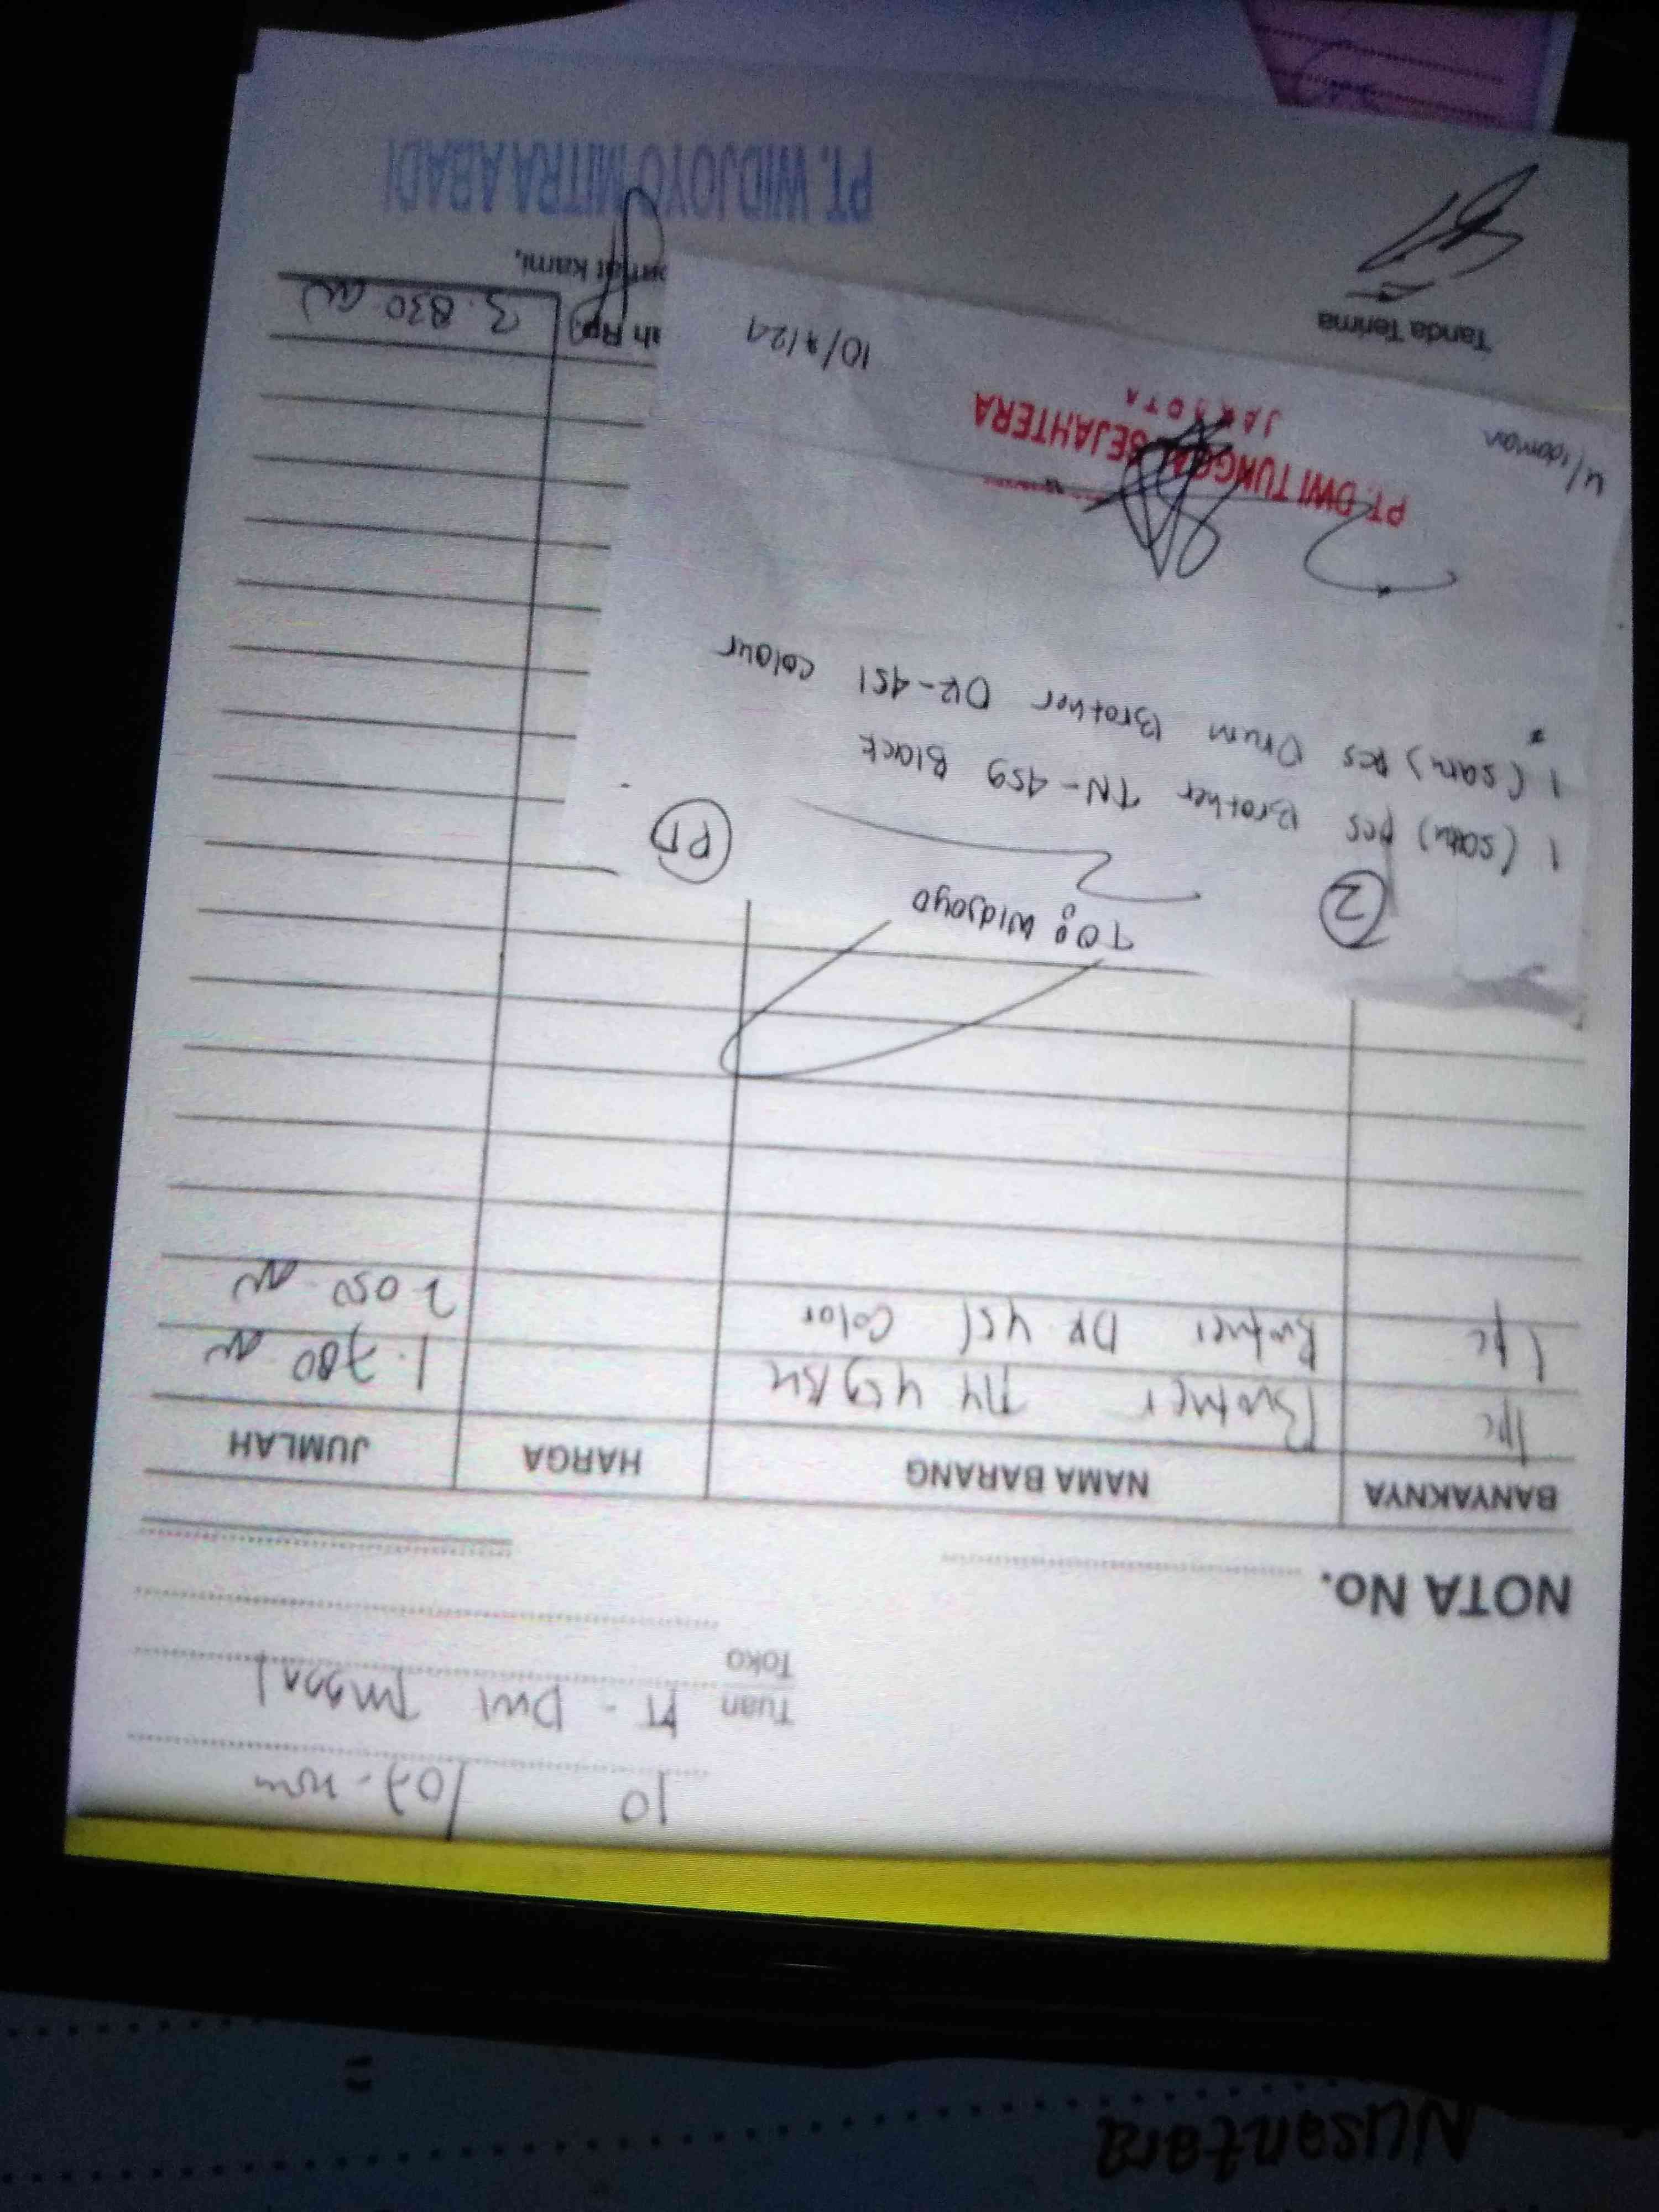 10 / 07 -
Tuan PT - Dwi Tunggal
Toko
NOTA No.
BANYAKNYA NAMA BARANG HARGA JUMLAH
1 pc Brother TN 459 BK 1.780
1 pc Brother DR 451 Color 2.050
TO: Widjoyo
2 PT
1 (satu) pcs Brother TN-459 Black
1 (satu) pcs Drum Brother DR-451 colour
PT. DWI TUNGGAL SEJAHTERA
JAKARTA
10/7/24
h Rp. 3.830
Tanda Terima
mat kami,
PT. WIDJOYO MITRA ABADI
Nusantara